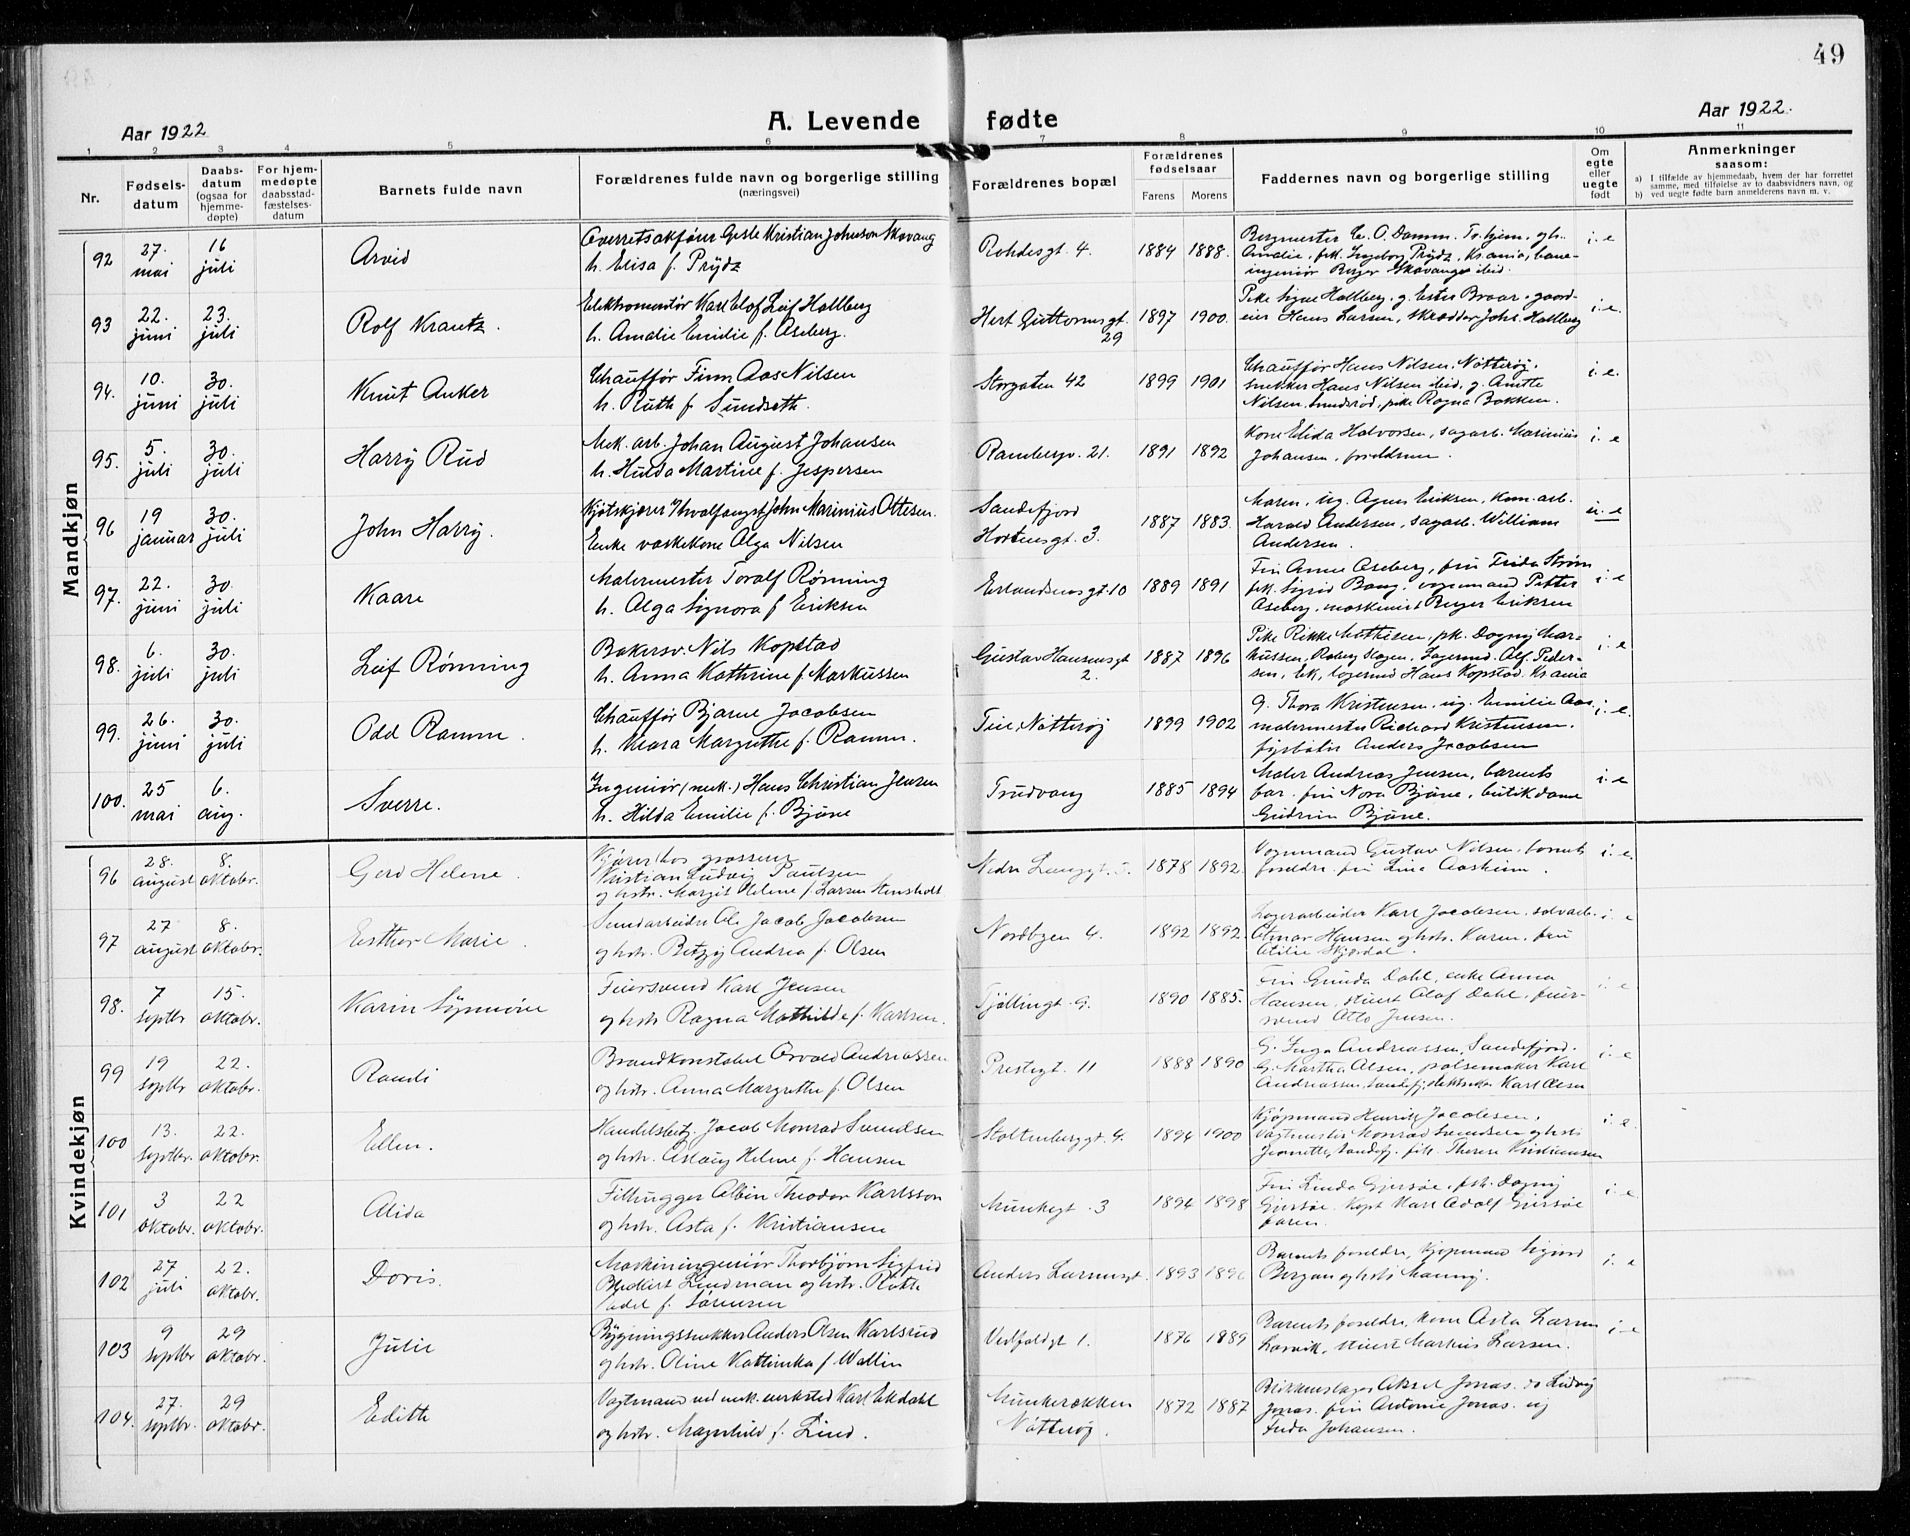 49
Aar 1922
A. Levende fødte
Aar 1922.
1 2 3 4 5 6 7 8 9 10 11
Nr.
Fødsels-
datum
Daabs-
datum
(ogsaa for
hjemme-
døpte)
For hjem-
medøpte
daabsstad-
fæstelses-
datum
Barnets fulde navn
Forældrenes fulde navn og borgerlige stilling
(næringsvei)
Forældrenes bopæl
Forældrenes
fødselsaar
Farens Morens
Faddernes navn og borgerlige stilling
Om
egte
eller
uegte
født
Anmerkninger
saasom:
a) I tilfælde av hjemmedaab, hvem der har forrettet
samme, med tilføielse av to daabsvidners navn, og
b) ved uegte fødte barn anmelderens navn m. v.
Mandkjøn
92 27. mai 16 juli
Arvid
Overretssakfører Gisle Kristian Johnson Skavang
h. Elisa f. Prydz
Rohdesgt. 4. 1884 1888.
Bergmester C. O. Damm. Tr.hjem, gh.
Amalie, frk. Ingeborg Prydz, Kr.ania, bane-
ingeniør Birger Skavanger ibid.
i. e
93 22. juni 23. juli
Rolf Krantz.
Elektromontør Karl Elof Leif Hallberg
h. Amalie Emilie f. Aseberg.
Hert. Guttormsgt. 29 1897 1900.
Pike Signe Hallberg. g. Ester Braar. gaard-
eier Hans Larsen, skrædder Johs. Hallberg
i. e.
94. 10. juni 30. juli
Knut Anker
Chauffør Finn Aas Nilsen
h. Ruth f. Sundseth.
Storgaten 42 1899 1901
Chauffør Hans Nilsen, Nøtterøy.
snekker Hans Nilsen ibid. g. Anette
Nilsen, pike Ragna Bakken.
i. e.
95. 5. juli 30. juli
Harry Rud
Mek. arb. Johan August Johansen
h. Hulda Martine f. Jespersen
Rambergv. 21. 1891 1892
Kone Elida Halvorsen, sagarb. Marinius
Johansen, foreldrene.
i. e
96 19 januar 30. juli
John Harry.
Kjøtskjærer Hvalfangst John Marinius Ottesen.
Enke vaskekone Olga Nilsen
Sandefjord
Hortensgt. 3. 1887 1883.
Maren, ug. Agnes Eriksen, kom. arb.
Harald Andersen, sagarb. William
Andersen.
u. e
97. 22. juni 30. juli
Kaare
Malermester Toralf Rønning
h. Olga Signora f. Eriksen
Erlandsensgt. 10 1889 1891
Fru Anna Aseberg, fru Frida Strøm
frk. Sigrid Bang, vognmand Petter
Aseberg, maskinist Birger Eriksen
i. e
98. 6. juli 30. juli
Leif Rønning
Bakersv. Nils Kopstad
h. Anna Kathrine f. Markussen
Gustav Hansensgt. 2. 1887 1896
Pike Rikke Mathisen, pk. Dagny Mar-
kussen, Raberg Skogen, Lagermd. Alf. Peder-
sen, Ek, lagermd Hans Kopstad. Kr.ania
i. e
99. 26. juni 30. juli
Odd Ramm.
Chauffør Bjarne Jacobsen
h. Mara Margrethe f. Ramm.
Teie, Nøtterøy 1899 1902
g. Thora Kristensen, ug. Emilie Aas
malermester Richard Kristensen.
fyrbøter Anders Jacobsen
i. e.
100. 25 mai 6. aug.
Sverre.
Ingeniør (mek.) Hans Christian Jensen
h. Hilda Emilie f. Bjune
Trudvang 1885 1894
Maler Andreas Jensen, barnets
far. fru Nora Bjune, butikdame
Gudrun Bjune.
i. e
Kvindekjøn
96 28. august 8. oktober.
Gerd Helene.
Kjører hos grosserer
Kristian Ludvig Paulsen
og hstr. Margit Helene f. Larsen Stensholt
Nedre Langgt. 1878 1892
Vognmand Gustav Nilsen. barnets
foreldre, fru Lina Aasheim.
i. e.
97 27 august 8. oktober.
Esther Marie.
Sundarbeider Ole Jacob Jacobsen
og hstr. Betzy Andrea f. Olsen
Nordbyen 4. 1892 1892.
Lagerarbeider Karl Jacobsen, sølvarb.
Otmar Hansen og hstr. Karen. fru
Otilie Skjørdal.
i. e
98. 7 septbr 15. oktober.
Karin Synnøve
Feiersvend Karl Jensen
og hstr. Ragna Mathilde f. Karlsen.
Tjøllingt. 9. 1890 1885.
Fru Gunda Dahl, enke Anna
Hansen, stuert Olaf Dahl, feier-
svend Otto Jensen.
i. e
99 19 septbr 22. oktober.
Randi
Brandkonstabel Orvald Andreassen
og hstr. Anna Margrethe f. Olsen
Prestegt. 11 1888 1890
G. Inga Andreassen, Sandefjord.
G. Martha Olsen, pølsemaker Karl
Andreassen, Sandefj. elektriker Karl Olsen
i. e
100 13. septbr. 22. oktober.
Ellen.
Handelsbetj. Jacob Monrad Svendsen
og hstr. Aslaug Helene f. Hansen
Stoltenberggt. 4. 1894 1900
Kjøpmand Henrik Jacobsen.
Vagtmester Monrad Svendsen og hstr
Jeanette, Sandefj. frk. Therese Kristiansen
i. e.
101 3 oktober. 22 oktober.
Alida
Filhugger Albin Theodor Karlsson
og hstr. Asta f. Kristiansen
Munkegt. 3 1894 1898
Fru Linda Gjersøe, frk. Dagny
Gjersøe. Kapt. Karl Adolf Gjersøe
faren.
i. e
102 27 juli 22. oktober.
Doris.
Maskiningeniør Thorbjørn Sigfrid
Lindman og hstr. Ruth
f. Sørensen
Anders Larsensgt. 1893 1896
Barnets foreldre, kjøpmand Sigurd
Bergan og hstr Manny.
i. e
103 9 septbr 29 oktober.
Julie
Bygningssnekker Anders Olsen Karlsrud
og hstr. Oline Kathinka f. Wallin
Vedfaldgt 1. 1876 1889
Barnets foreldre, kone Asta Larsen
Larvik, stuert Markus Larsen.
i. e
104. 27. septbr. 29 oktober.
Edith
Vagtmand ved mek. verksted Karl Ekdahl
og hstr. Magnhild f. Lind.
Munkerækken
Nøtterøy. 1872 1887
Blikkenslager Aksel Jonas. do Ludvig
Jonas. fru Antonie Jonas. ug
Frida Johansen.